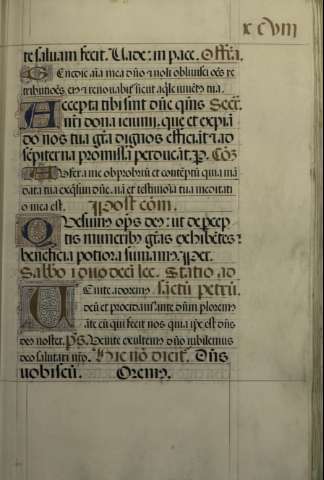 xcviii
te saluam fecit. Uade: in pace. Offra.
Benedic aīa mea dño et noli obliuisci oēs re
tributiões eius et renouabit̄ sicut aq̄le iuuent̄ tua.
Accepta tibi sint dñe q̄ns Secrē.
nr̄i dona ieiunij, que et expiā
do nos tua gr̄a dignos efficiāt et ad
sempiterna promissa perducāt. P. Cōō
Aufer a me obprobriū et contēptū quia mā
data tua exq̄siui dñe. nā et testimoīa tua meditati
o mea est. Post com.
Quesumus op̄s deus: ut de percep
tis muneribus gr̄as exhibētes:
beneficia potiora sumamus. Per.
Sabbo in duodecī lec. Statio ad
Uenite adoremus sāctū petrū.
deū et procidamus ante dūm ploremus
ante eū qui fecit nos quia ip̄e est dn̄s
deus noster. Ps. Uenite exultemus dño iubilemus
deo salutari nr̄o. Hic nō dicit̄. Dn̄s
uobiscū. Oremus.